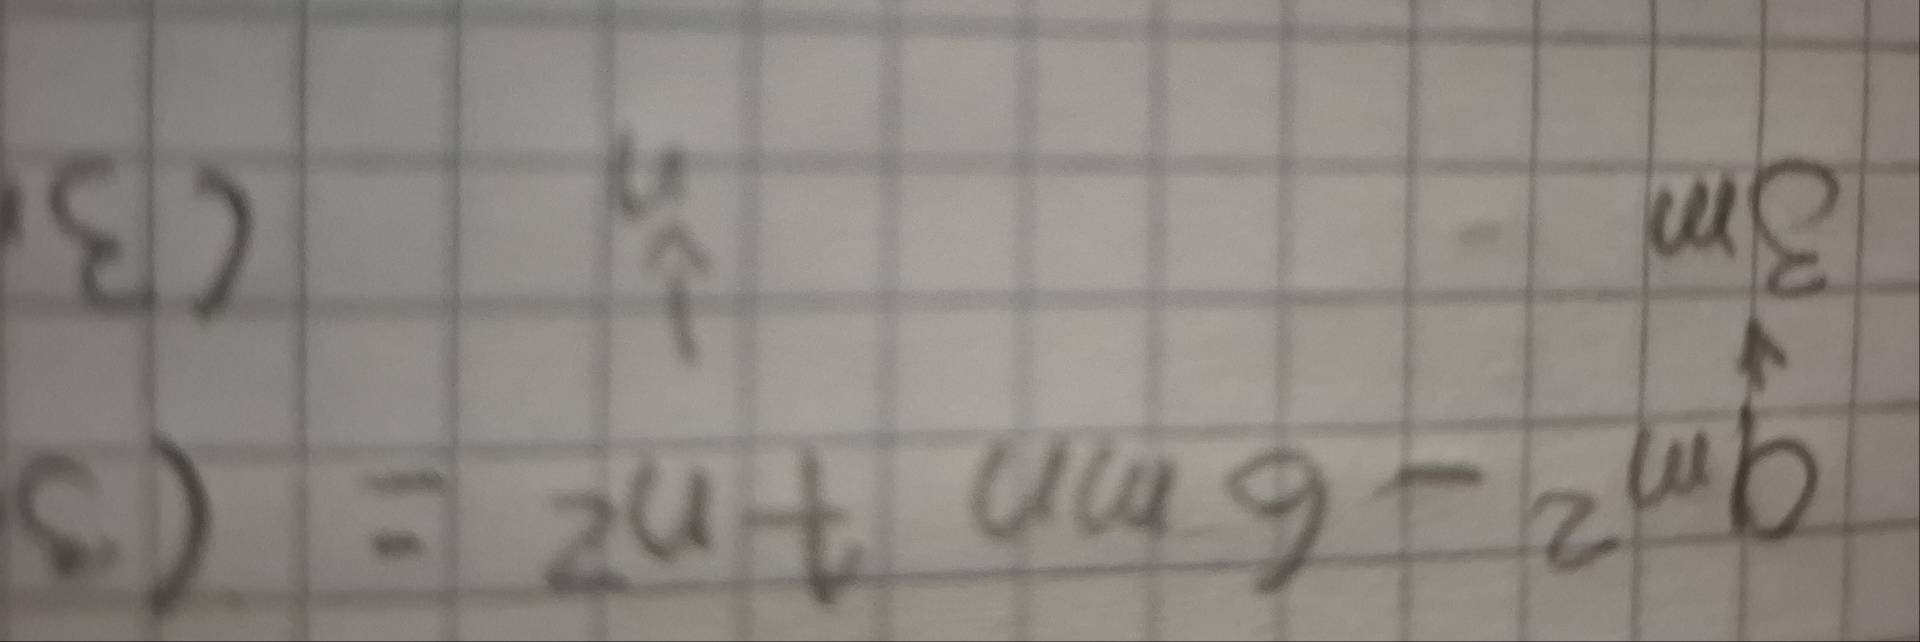 9m² - 6mn + n² = (3
3m n (3